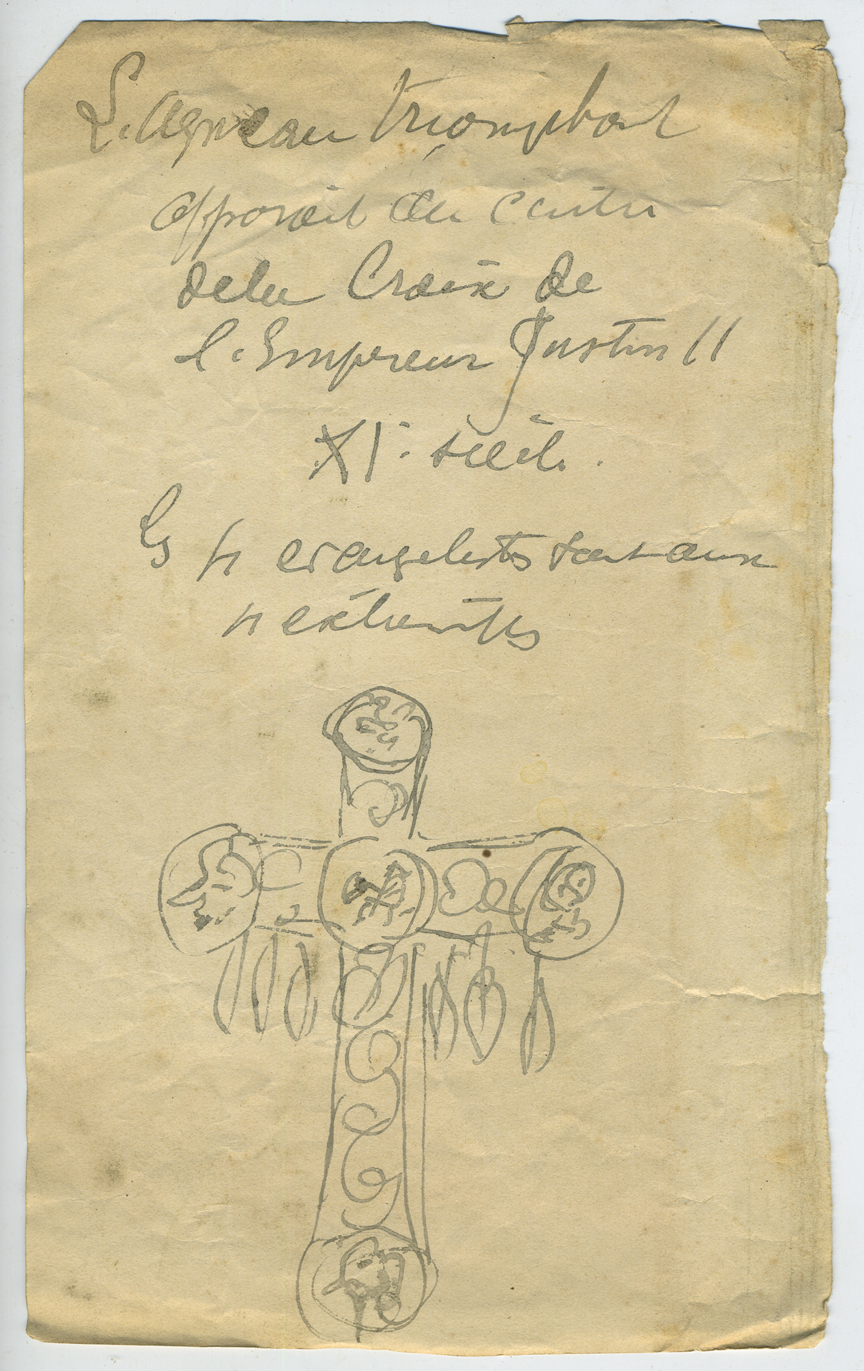 L'agneau triomphant
apparait au centre
de la Croix de
l'Empereur Justin II
XI e siècle.
Les 4 evangelistes sont aux
4 extremités